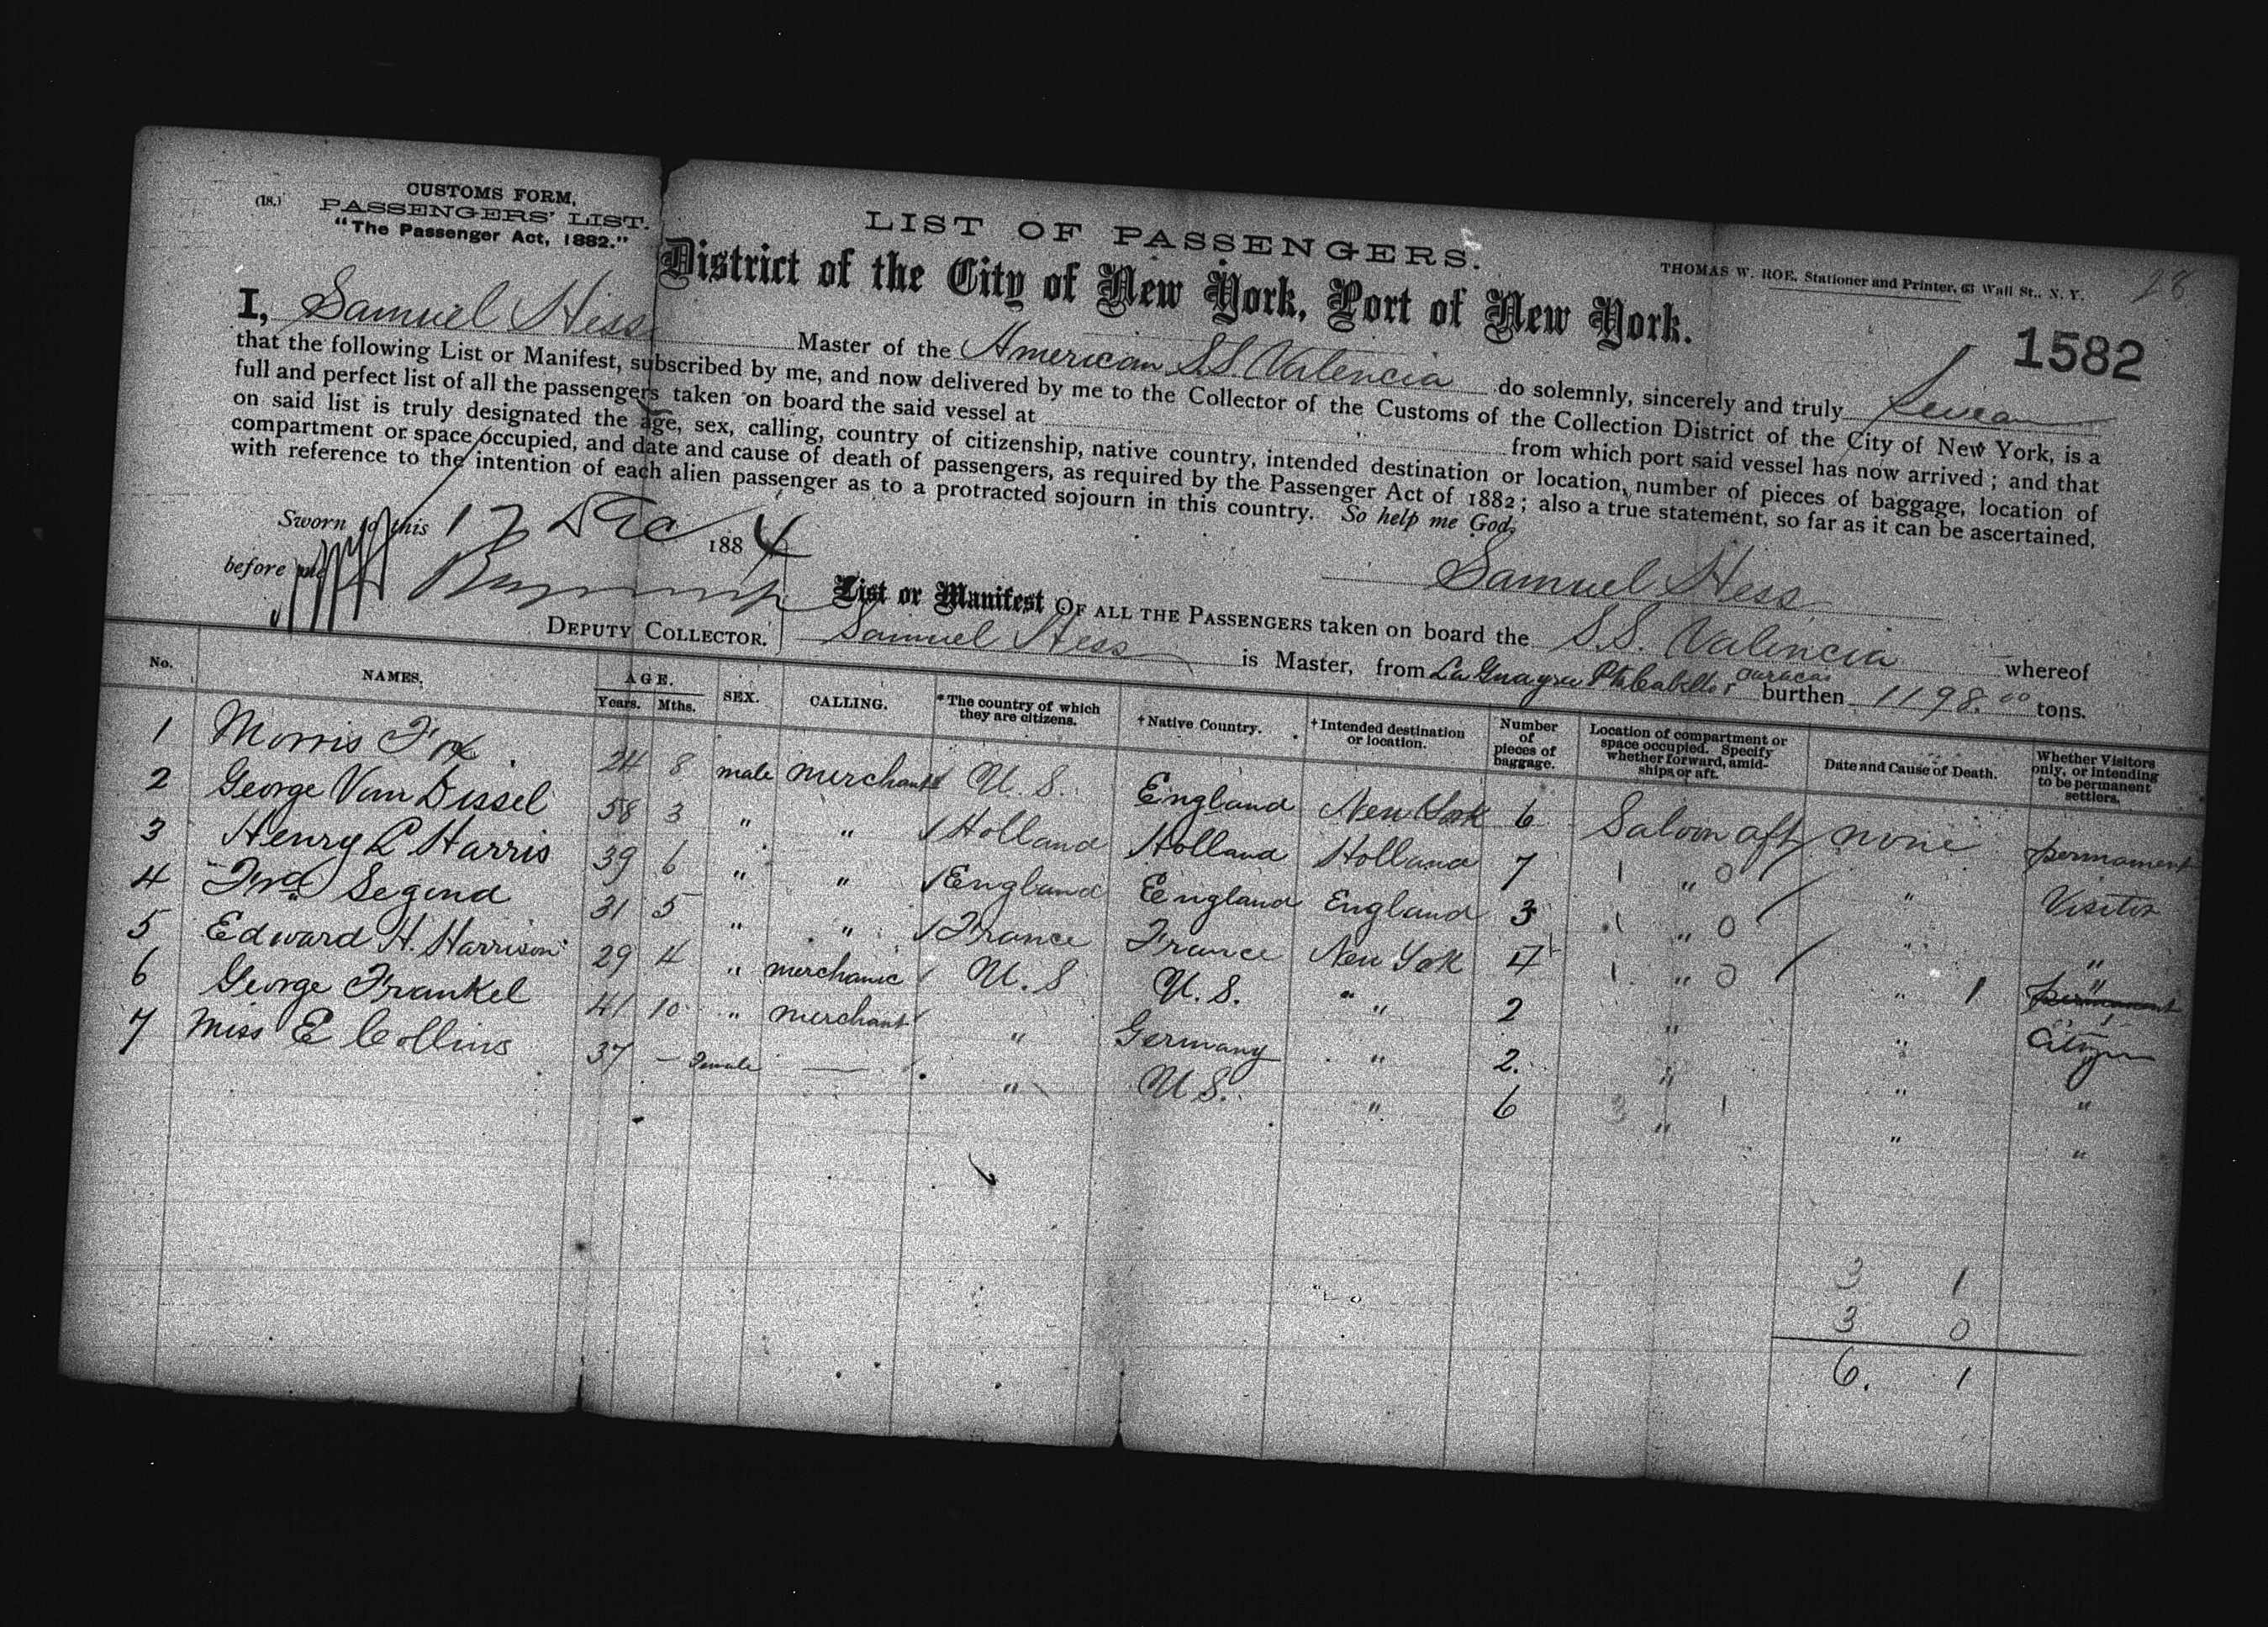 CUSTOMS FORM,
(18.) PASSENGERS' LIST.
"The Passenger Act, 1882."
LIST OF PASSENGERS.
THOMAS W. ROE, Stationer and Printer, 63 Wall St., N. Y.
28
District of the City of New York, Port of New York.
1582
I, Samuel Hess Master of the American S.S. Valencia do solemnly, sincerely and truly Swear
that the following List or Manifest, subscribed by me, and now delivered by me to the Collector of the Customs of the Collection District of the City of New York, is a
full and perfect list of all the passengers taken on board the said vessel at from which port said vessel has now arrived; and that
on said list is truly designated the age, sex, calling, country of citizenship, native country, intended destination or location, number of pieces of baggage, location of
compartment or space occupied, and date and cause of death of passengers, as required by the Passenger Act of 1882; also a true statement, so far as it can be ascertained,
with reference to the intention of each alien passenger as to a protracted sojourn in this country. So help me God.
Sworn to this 17 Dec 1884
Samuel Hess
before me
DEPUTY COLLECTOR.
List or Manifest OF ALL THE PASSENGERS taken on board the S.S. Valencia whereof
Samuel Hess is Master, from La Guayra Pto Cabello & Curacao burthen 1198.00 tons.
No. NAMES. AGE. Years. Mths. SEX. CALLING. *The country of which they are citizens. †Native Country. †Intended destination or location. Number of pieces of baggage. Location of compartment or space occupied. Specify whether forward, amidships or aft. Date and Cause of Death. Whether Visitors only, or intending to be permanent settlers.
1 Morris Fox. 24 8 male merchant U. S. England New York 6 Saloon aft none permanent
2 George Van Dissel 58 3 " " Holland Holland Holland 7 1 " 0 " Visitor
3 Henry L Harris 39 6 " " England England England 3 1 " 0 " "
4 Segend 31 5 " " France France New York 4 1 " 0 " 1 "
5 Edward H. Harrison 29 4 " mechanic U. S U. S. " " 2 " " Citizen
6 George Frankel 41 10 " merchant " Germany " 2. " " "
7 Miss E Collins 37 – Female — " U S. " 6 3 " 1 " "
3 1
3 0
6. 1